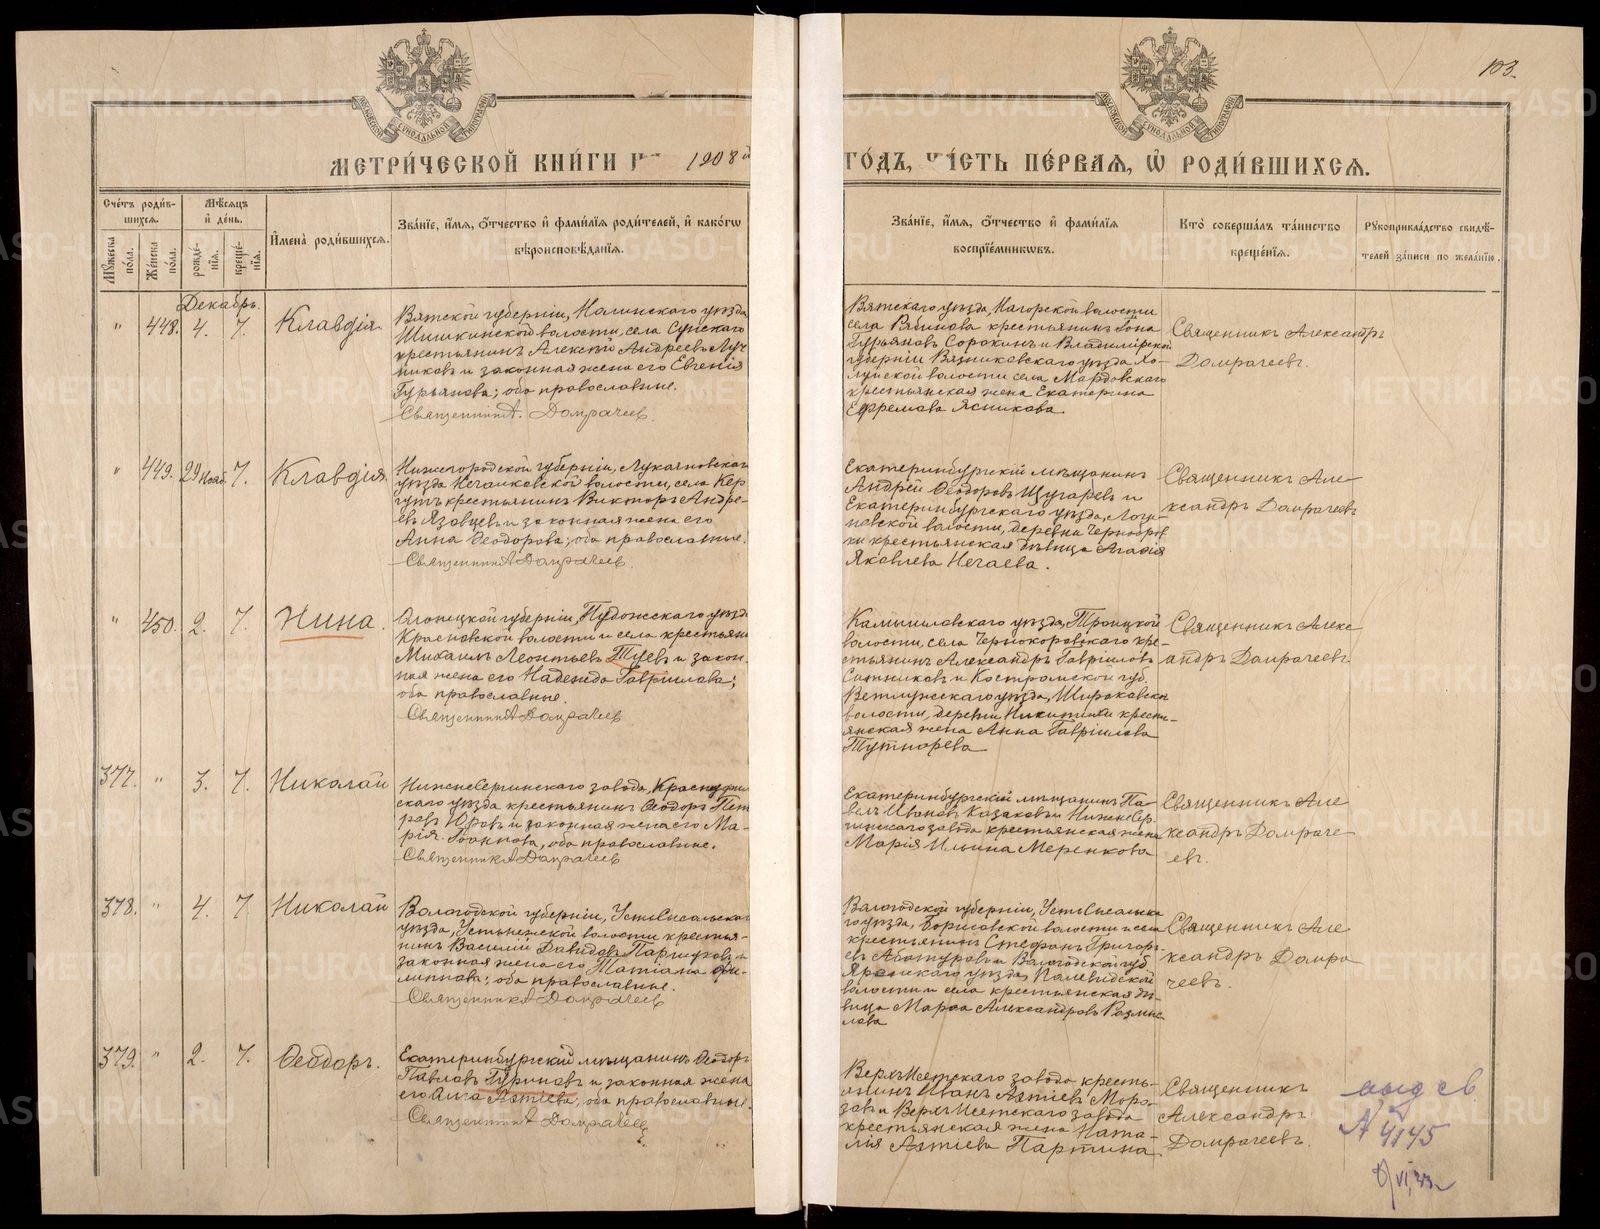 103.
МЕТРИ́ЧЕСКОЙ КНИ́ГИ Н 1908 й ГО́ДЪ, ЧА́СТЬ ПЕ́РВАЯ, Ѽ РОДИ́ВШИХСЯ.
Сче́тъ роди́в-
шихся.
Му́жеска по́ла.
Же́нска по́ла.
Мѣ́сяцъ
и҆ де́нь.
рожде́-
нїя.
креще́-
нїя.
И҆мена̀ роди́вшихся.
Зва́нїе, и҆́мя, о҆́тчество и҆ фами́лїя роди́телей, и҆ како́гѡ
вѣроисповѣ́данїя.
Зва́нїе, и҆́мя, о҆́тчество и҆ фами́лїя
воспрїе́мникѡвъ.
Кто̀ соверша́лъ та́инство
креще́нїя.
Рꙋкоприкла́дство свидѣ́-
телей за́писи по жела́нїю.
Декабрь.
" 448. 4. 7. Клавдія
Вятской губерніи, Малинскаго уѣзда
Шишкинской волости, села Сунскаго
крестьянинъ Алексѣй Андреевъ Луч
никовъ и законная жена его Евгенія
Гурьянова; оба православные.
Священникъ А. Домрачеев
Вятскаго уѣзда, Нагорской волости
села Рябинова крестьянинъ Іона
Гурьяновъ Сорокинъ и Владимірской
губерніи Вязниковскаго уѣзда Хо-
луйской волости села Мардовскаго
крестьянская жена Екатерина
Ефремова Ясникова.
Священникъ Александръ
Домрачеевъ.
" 449. 29 Нояб. 7. Клавдія
Нижегородской губерніи, Лукояновскаго
уѣзда волости, села Кер
гутъ крестьянинъ Викторъ Андре-
евъ Язовцевъ и законная жена его
Анна Ѳеодорова; оба православные.
Священникъ А Домрачеев.
Екатеринбургскій мѣщанинъ
Андрей Ѳеодоровъ Щугаревъ и
Екатеринбургскаго уѣзда, Логи-
новской волости, деревни Чернобров
ки крестьянская дѣвица Агафія
Яковлева Нечаева.
Священникъ Але-
ксандръ Домрачеевъ
" 450. 2. 7. Нина.
Олонецкой губерніи, Пудожскаго уѣзда
Красновской волости и села крестьян.
Михаилъ Леонтьевъ Туевъ и закон.
ная жена его Надежда Гавріилова;
оба православные.
Священникъ А Домрачеев
Камышловскаго уѣзда, Троицкой
волости, села Чернокоровскаго кре-
стьянинъ Александръ Гавріиловъ
Ситниковъ и Костромской губ.
Ветлужскаго уѣзда, Широковск
волости, деревни Никитихи кресть-
янская жена Анна Гавріилова
Тутнорева
Священникъ Алекс
андръ Домрачеевъ
377. " 3. 7. Николай
НижнеСергинскаго завода, Красноуфим
скаго уѣзда крестьянинъ Ѳеодоръ Пет
ровъ Юровъ и законная жена его Ма-
рія Іоаннова, оба православные.
Священникъ А Домрачеев
Екатеринбургскій мѣщанинъ Па-
велъ Ивановъ Казаковъ и НижнеСер-
гинскаго завода крестьянская жена
Марія Ильина Меренкова
Священникъ Але
ксандръ Домраче
евъ.
378. " 4. 7 Николай
Вологодской губерніи, УстьСысольскаго
уѣзда, Устьнемской волости крестья-
нинъ Василій Давидовъ Паршуковъ и
законная жена его Татіана Фи-
липпова; оба православные.
Священникъ А Домрачеев
Вологодской губерніи, УстьСысольска
го уѣзда, Борисовской волости и села
крестьянинъ Стефанъ Григорь-
евъ и Вологодской губ
Яренскаго уѣзда, Палевицкой
волости и села крестьянская дѣ-
вица Марѳа Александрова Размыс
лова
Священникъ Але
ксандръ Домра
чеевъ.
379. " 2. 7. Ѳеодоръ.
Екатеринбургскій мѣщанинъ Ѳеодоръ
Павловъ Гуриновъ и законная жена
его Анна Автіева; оба православные.
Священникъ А Домрачеев
ВерхъИсетскаго завода кресть-
янинъ Иванъ Автіевъ Моро-
зовъ и ВерхъИсетскаго завода
крестьянская жена Ната-
лія Автіева Партина
Священникъ
Александръ
Домрачеевъ.
выд св.
№ 4145